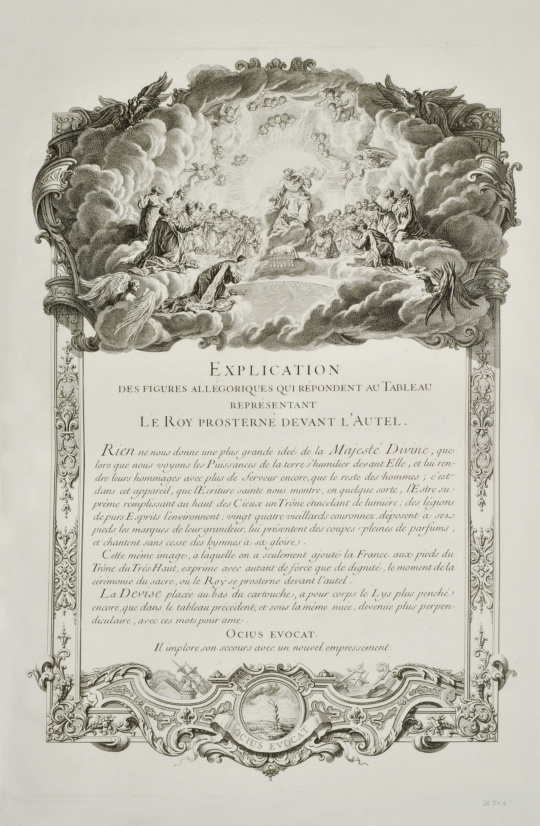 EXPLICATION
DES FIGURES ALLEGORIQUES QUI RÉPONDENT AU TABLEAU
REPRÉSENTANT
LE ROY PROSTERNÉ DEVANT L'AUTEL.
Rien ne nous donne une plus grande ideé de la Majesté Divine, que
lors que nous voyons les Puissances de la terre s'humilier devant Elle, et lui ren-
dre leurs hommages avec plus de ferveur encore, que le reste des hommes; c'est
dans cet appareil, que l'Ecriture sainte nous montre, en quelque sorte, l'Estre su-
prême remplissant au haut des Cieux un Trône étincelant de lumiere; des légions
de purs Esprits l'environnent; vingt quatre vieillards couronnez, déposent à ses
pieds les marques de leur grandeur, lui présentent des coupes pleines de parfums,
et chantent sans cesse des hymnes à sa gloire.
Cette même image, a laquelle on a seulement ajouté la France aux pieds du
Trône du Trés-Haut, exprime avec autant de force que de dignité, le moment de la
cérémonie du sacre, où le Roy se prosterne devant l'autel.
La Devise placée au bas du cartouche, a pour corps le Lys plus penché
encore, que dans le tableau précédent, et sous la même nuée, devenue plus perpen-
diculaire, avec ces mots pour ame.
OCIUS EVOCAT.
Il implore son secours avec un nouvel empressement.
OCIUS EVOCAT